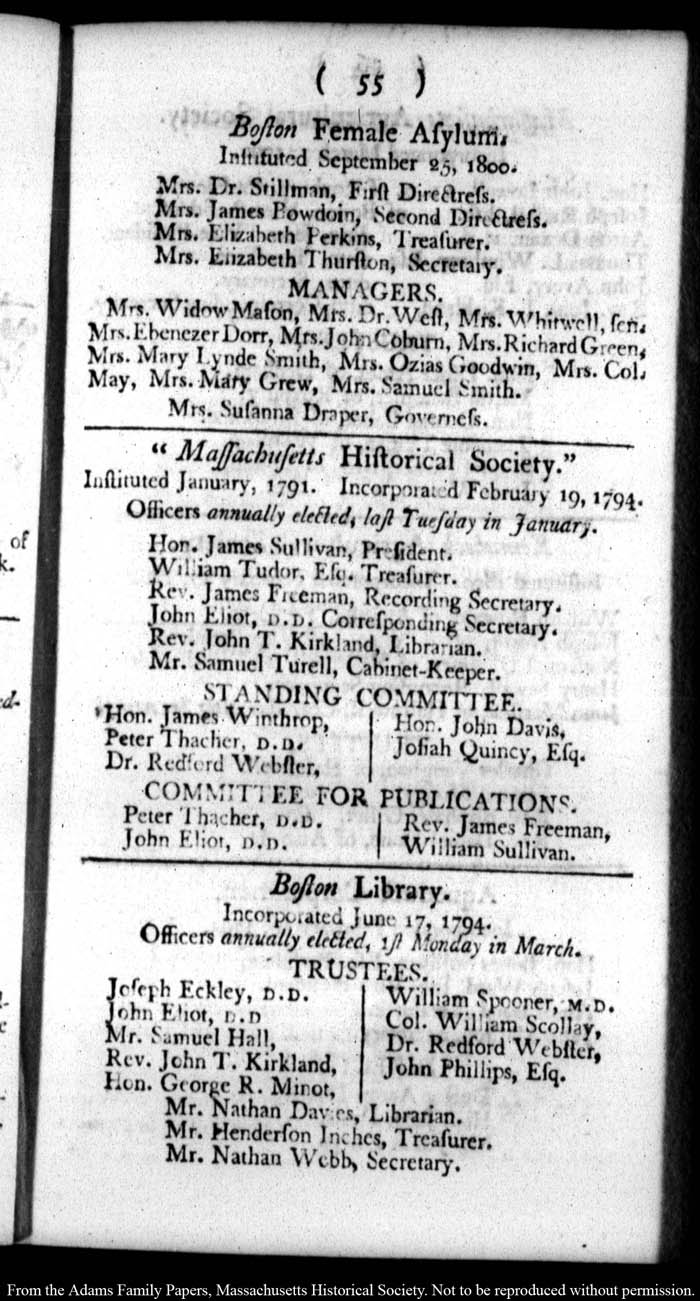 ( 55 )
Boſton Female Aſylum.
Inſtituted September 25, 1800.
Mrs. Dr. Stillman, Firſt Directreſs.
Mrs. James Bowdoin, Second Directreſs.
Mrs. Elizabeth Perkins, Treaſurer.
Mrs. Elizabeth Thurſton, Secretary.
MANAGERS.
Mrs. Widow Maſon, Mrs. Dr. Weſt, Mrs. Whitwell, ſen.
Mrs. Ebenezer Dorr, Mrs. John Coburn, Mrs. Richard Green,
Mrs. Mary Lynde Smith, Mrs. Ozias Goodwin, Mrs. Col.
May, Mrs. Mary Grew, Mrs. Samuel Smith.
Mrs. Suſanna Draper, Governeſs.
“ Maſſachuſetts Hiſtorical Society.”
Inſtituted January, 1791. Incorporated February 19, 1794.
Officers annually elected, laſt Tueſday in January.
Hon. James Sullivan, Preſident.
William Tudor, Eſq. Treaſurer.
Rev. James Freeman, Recording Secretary.
John Eliot, D.D. Correſponding Secretary.
Rev. John T. Kirkland, Librarian.
Mr. Samuel Turell, Cabinet-Keeper.
STANDING COMMITTEE.
Hon. James Winthrop,
Peter Thacher, D.D.
Dr. Redford Webſter,
Hon. John Davis,
Joſiah Quincy, Eſq.
COMMITTEE FOR PUBLICATIONS.
Peter Thacher, D.D.
John Eliot, D.D.
Rev. James Freeman,
William Sullivan.
Boſton Library.
Incorporated June 17, 1794.
Officers annually elected, 1ſt Monday in March.
TRUSTEES.
Joſeph Eckley, D.D.
John Eliot, D.D
Mr. Samuel Hall,
Rev. John T. Kirkland,
Hon. George R. Minot,
William Spooner, M.D.
Col. William Scollay,
Dr. Redford Webſter,
John Phillips, Eſq.
Mr. Nathan Davies, Librarian.
Mr. Henderſon Inches, Treaſurer.
Mr. Nathan Webb, Secretary.
of
k.
ed-
From the Adams Family Papers, Massachusetts Historical Society. Not to be reproduced without permission.